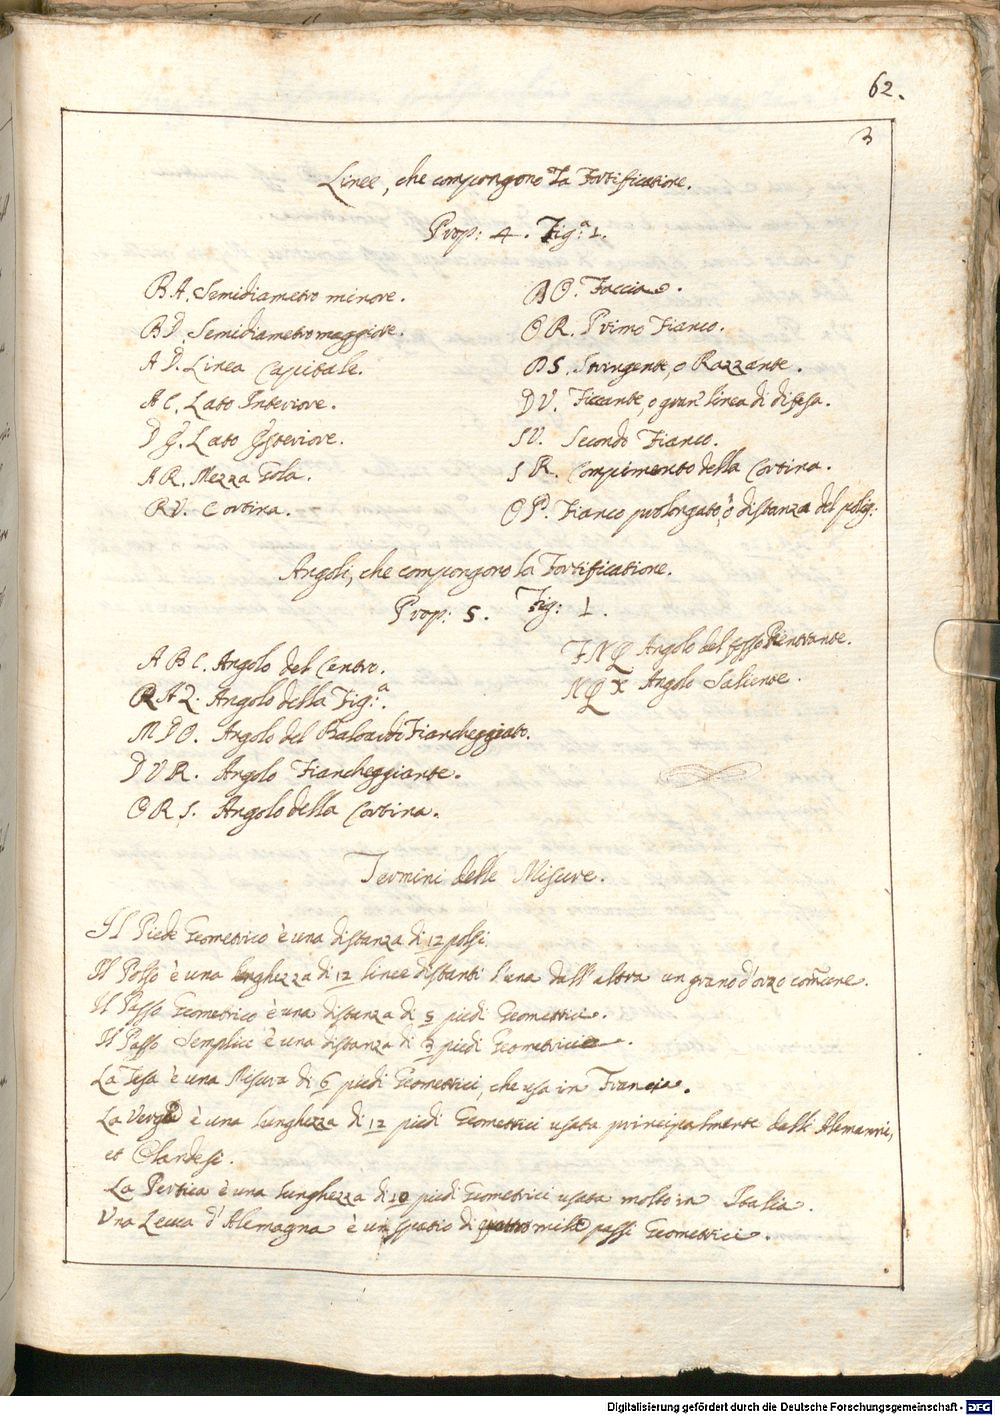 62.
3
Linee, che compongono la Fortificatione.
Prop: 4. Fig.ª 1.
BA. Semidiametro minore.
BD. Semidiametro maggiore.
AD. Linea Capitale.
AC. Lato Interiore.
DG. Lato Esteriore.
AR. Mezza Gola.
RV. Cortina.
DO. Faccia.
OR. Primo Fianco.
DS. Stringente, o Razzante.
DV. Ficcante, o gran linea di difesa.
SV. Secondo Fianco.
SR. Compimento della Cortina.
OP. Fianco prolongato, ò distanza del polig:
Angoli, che compongono la Fortificatione.
Prop: 5. Fig: 1.
ABC. Angolo del Centro.
RAZ. Angolo della Fig.ª
MDO. Angolo del Baloardo Fiancheggiato.
DVR. Angolo Fiancheggiante.
ORS. Angolo della Cortina.
FNQ Angolo del fosso Rientrante.
NQX Angolo Saliente.
Termini delle Misure.
Il Piede Geometrico è una distanza di 12 polsi.
Il Polso è una lunghezza di 12 linee distanti l'una dall'altra un grano d'orzo comune.
Il Passo Geometrico è una distanza di 5 piedi Geometrici.
Il Passo Semplice è una distanza di 3 piedi Geometrici.
La Tesa è una Misura di 6 piedi Geometrici, che usa in Francia.
La Verga è una lunghezza di 12 piedi Geometrici usata principalmente dalli Alemanni,
et Olandesi.
La Pertica è una lunghezza di 10 piedi Geometrici usata molto in Italia.
Una Lecca d'Alemagna è un spatio di quattro mille passi Geometrici.
Digitalisierung gefördert durch die Deutsche Forschungsgemeinschaft - DFG